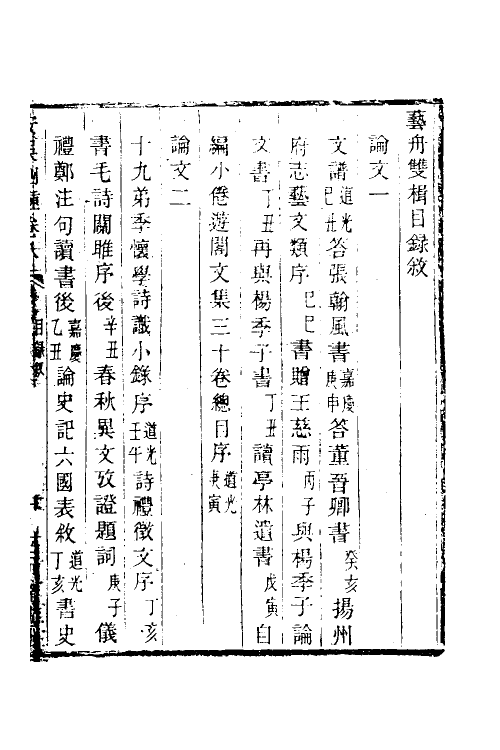 藝舟雙楫目録敘
論文一
文譜道光己丑答張翰風書嘉慶庚申答董晉卿書癸亥揚州
府志藝文類序己巳書贈王慈雨丙子與楊季子論
文書丁丑再與楊季子書丁丑讀亭林遺書戊寅自
編小倦遊閣文集三十卷總目序道光庚寅
論文二
十九弟季懷學詩識小錄序道光壬午詩禮徵文序丁亥
書毛詩關雎序後辛丑春秋異文攷證題詞庚子儀
禮鄭注句讀書後嘉慶乙丑論史記六國表敘道光丁亥書史